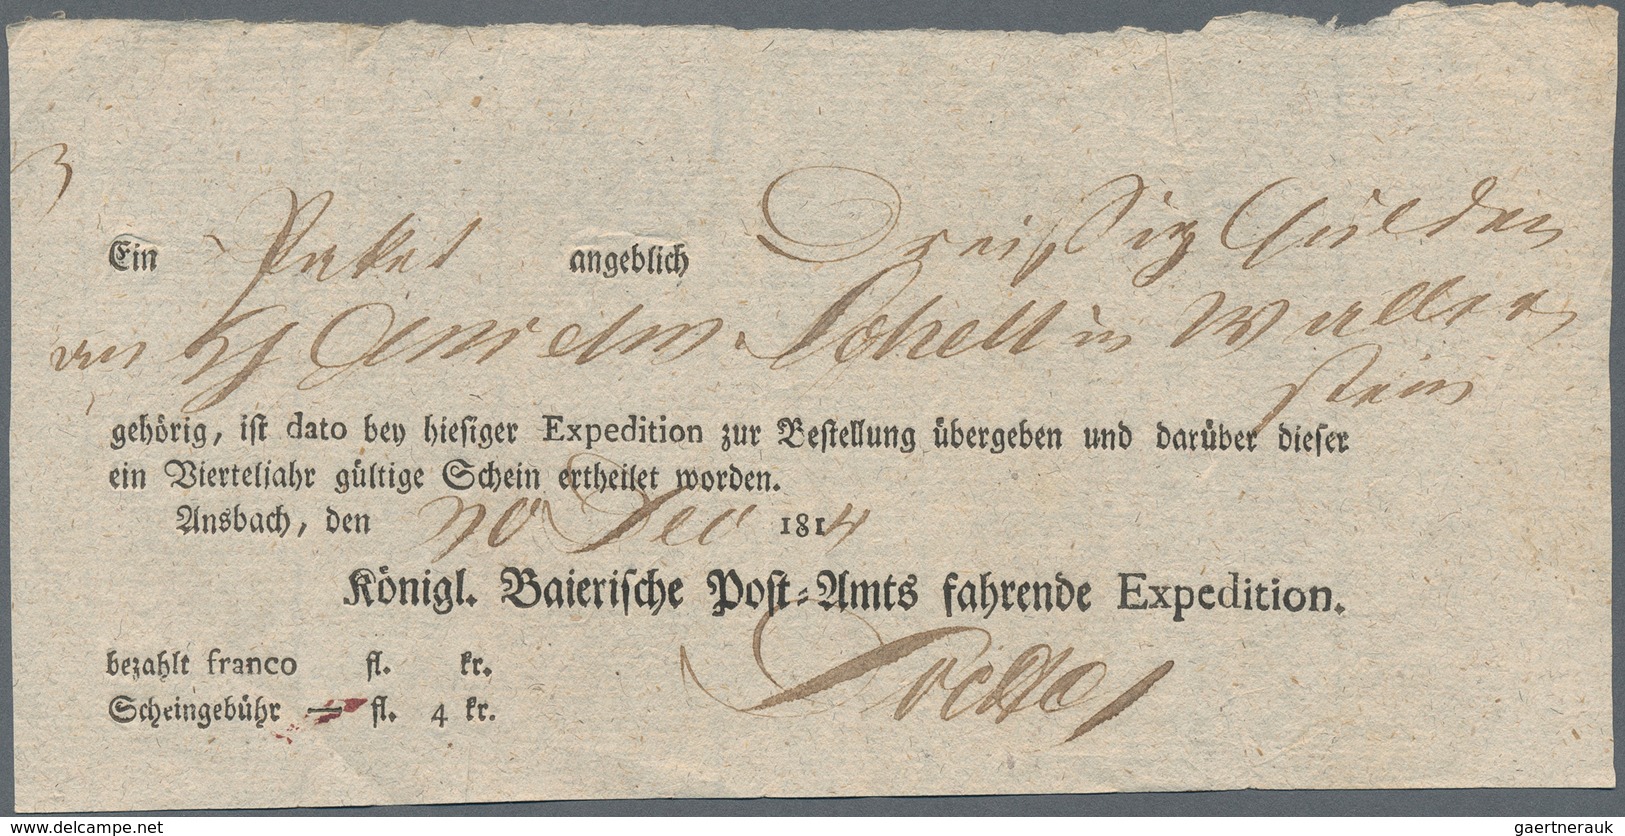 3
Ein Paket angeblich Dreißig Gulden
an H Anselm Schell in Waller
stein
gehörig, iſt dato bey hieſiger Expedition zur Beſtellung übergeben und darüber dieſer
ein Vierteljahr gültige Schein ertheilet worden.
Ansbach, den Dec 1814
Königl. Baieriſche Poſt-Amts fahrende Expedition.
bezahlt franco fl. kr.
Scheingebühr — fl. 4 kr.
www.delcampe.net
gaertnerauk